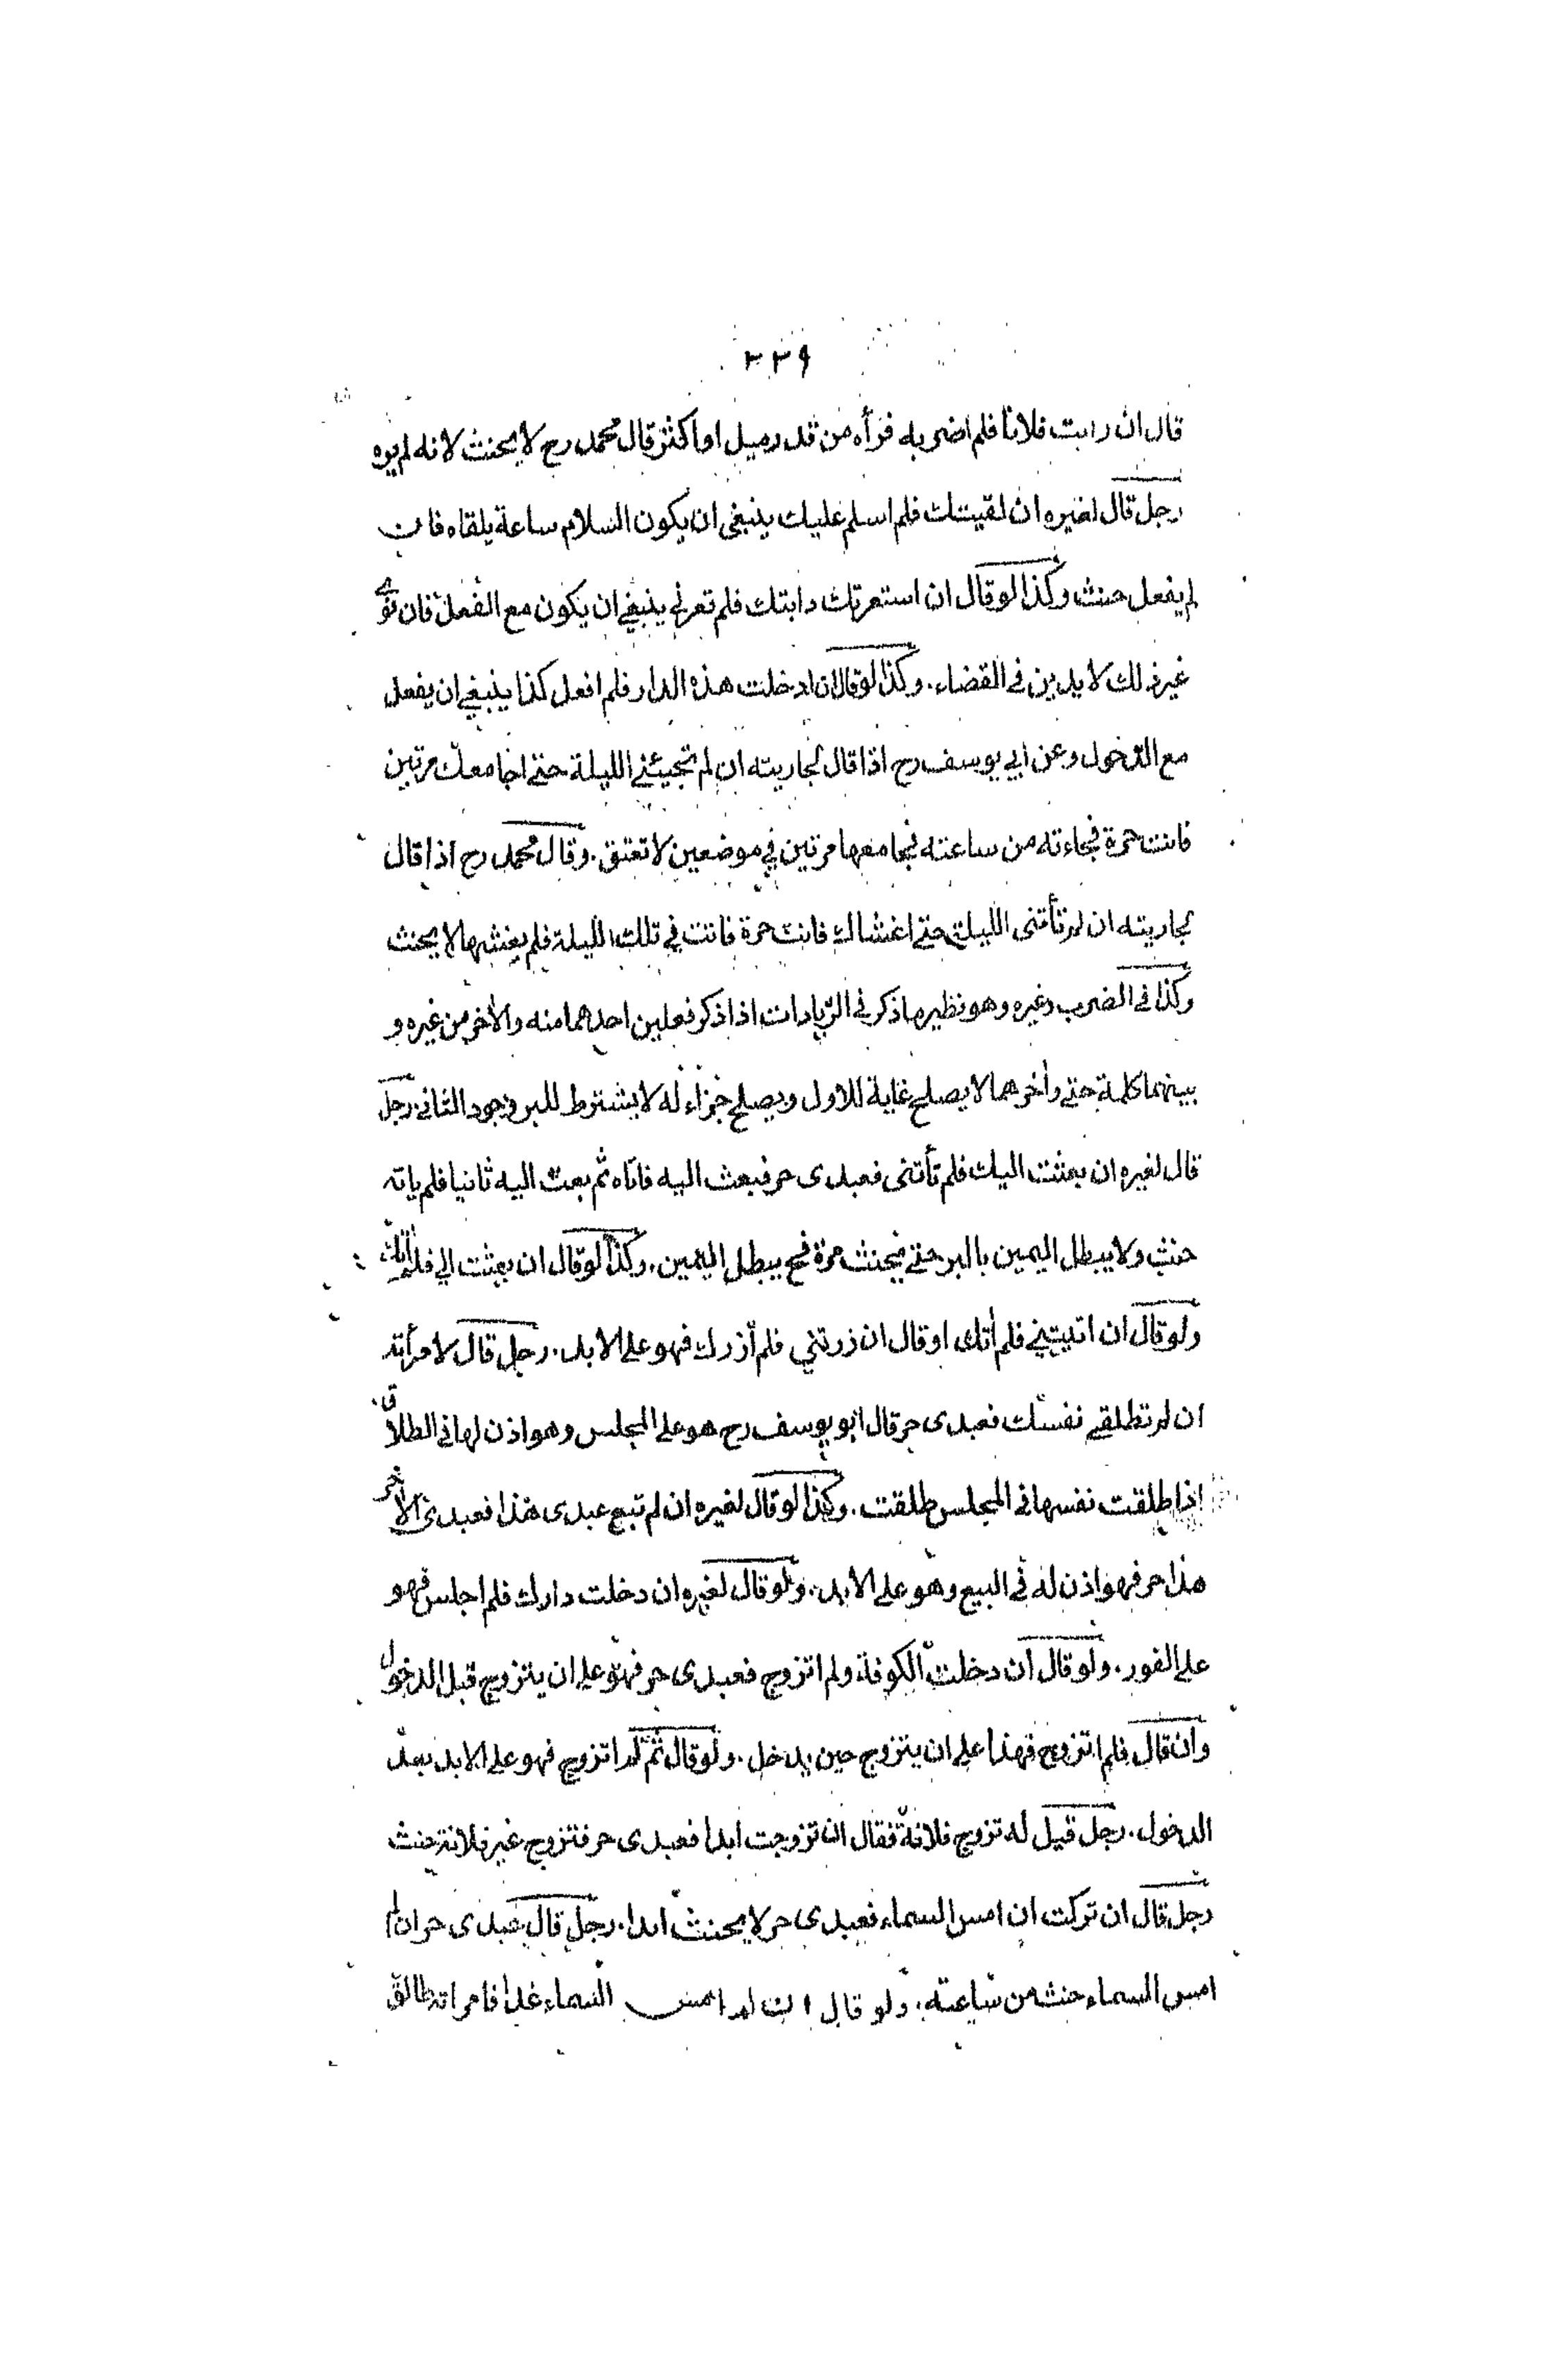 ٣٣٩
قال ان رايت فلانا فلم اضربه فرأه من قدر ميل او اكثر قال محمد رح لا يحنث لانه لم يره
رجل قال لغيره ان لقيتك فلم اسلم عليك ينبغى ان يكون السلام ساعة يلقاه فان
لم يفعل حنث وكذا لو قال ان استعرتك دابتك فلم تعرني ينبغي ان يكون مع الفعل فان نوى
غير ذلك لا يدين في القضاء. وكذا لو قال ان ادخلت هذه الدار فلم افعل كذا ينبغي ان يفعل
مع الدخول وعن ابي يوسف رح اذا قال لجاريته ان لم تجيئني الليلة حتى اجامعك مرتين
فانت حرة فجاءته من ساعته فجامعها مرتين في موضعين لا تعتق. وقال محمد رح اذا قال
لجاريته ان لم تأتنى الليلة حتى اغشاك فانت حرة فاتت في تلك الليلة فلم يغشها لا يحنث
وكذا في الضرب وغيره وهو نظير ما ذكر في الزيادات اذا ذكر فعلين احدهما منه والأخر من غيره و
بينهما كلمة حتى وأخرهما لا يصلح غاية للاول ويصلح جزاء له لا يشترط للبر وجود الثاني رجل
قال لغيره ان بعثت اليك فلم تأتنى فعبدى حر فبعث اليه فاتاه ثم بعث اليه ثانيا فلم ياته
حنث ولا يبطل اليمين بالبر حتى يحنث مرة فح يبطل اليمين. وكذا لو قال ان بعثت الي فلم أتك
ولو قال ان اتيتني فلم أتك او قال ان زرتني فلم أزرك فهو على الابد. رجل قال لامرأته
ان لم تطلقى نفسك فعبدى حر قال ابو يوسف رح هو على المجلس وهو اذن لها في الطلاق
اذا طلقت نفسها في المجلس طلقت. وكذا لو قال لغيره ان لم تبع عبدى هذا فعبدى الأخر
هذا حر فهو اذن له في البيع وهو على الابد. ولو قال لغيره ان دخلت دارك فلم اجلس فهو
على الفور. ولو قال ان دخلت الكوفة ولم اتزوج فعبدى حر فهو على ان يتزوج قبل الدخول
وان قال فلم اتزوج فهذا على ان يتزوج حين يدخل. ولو قال ثم لم اتزوج فهو على الابد بعد
الدخول. رجل قيل له تزوج فلانة فقال ان تزوجت ابدا فعبدى حر فتزوج غير فلانة حنث
رجل قال ان تركت ان امس السماء فعبدى حر لا يحنث ابدا. رجل قال عبدى حر ان لم
امس السماء حنث من ساعته. ولو قال ان لم امس السماء غدا فامراته طالق